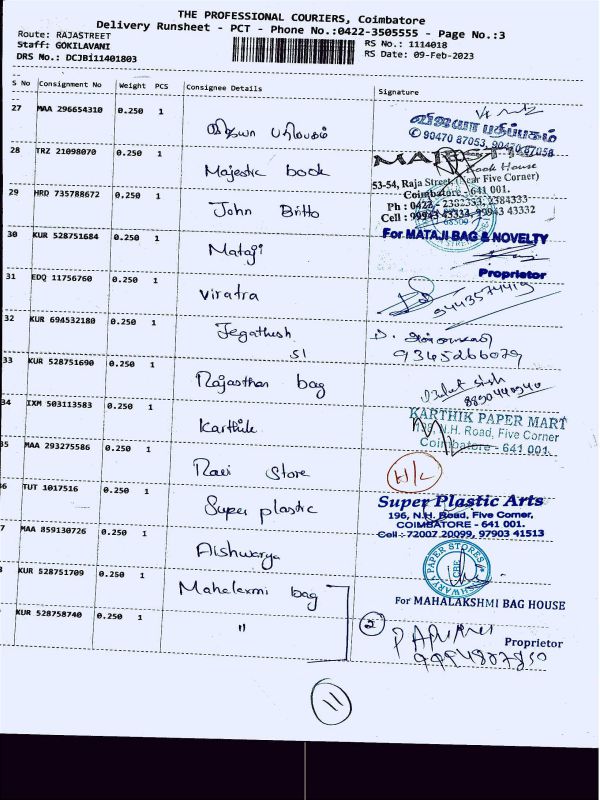 THE PROFESSIONAL COURIERS, Coimbatore
Delivery Runsheet - PCT - Phone No.:0422-3505555 - Page No.:3
Route: RAJASTREET
RS No.: 1114018
Staff: GOKILAVANI
RS Date: 09-Feb-2023
DRS No.: DCJBi111401803
S No Consignment No Weight PCS Consignee Details Signature
27 MAA 296654310 0.250 1
விஜயா பதிப்பகம்
✆ 90470 87053, 90470 87058
28 TRZ 21098070 0.250 1 Majestic book
Book House
53-54, Raja Street, (Near Five Corner)
Coimbatore - 641 001.
29 HRD 735788672 0.250 1 John Britto
Ph : 0422 - 2382333, 2384333
Cell : 99943 43333, 99943 43332
30 KUR 528751684 0.250 1 Mataji
For MATAJI BAG & NOVELTY
Proprietor
31 EDQ 11756760 0.250 1 Viratra
9443574419
32 KUR 694532180 0.250 1 Jegathish
D.
9345266079
33 KUR 528751690 0.250 1 Rajasthan bag
8890440940
34 IXM 503113583 0.250 1 Karthik
KARTHIK PAPER MART
N.H. Road, Five Corner
Coimbatore - 641 001.
35 MAA 293275586 0.250 1 Ravi Store
H/L
36 TUT 1017516 0.250 1 Super plastic
Super Plastic Arts
196, N.H. Road, Five Corner,
COIMBATORE - 641 001.
Cell : 72007 20099, 97903 41513
7 MAA 859130726 0.250 1 Aishwarya
AISHWARYA PAPER STORES
CBE
KUR 528751709 0.250 1 Mahalaxmi bag
For MAHALAKSHMI BAG HOUSE
KUR 528758740 0.250 1 "
2
Proprietor
11